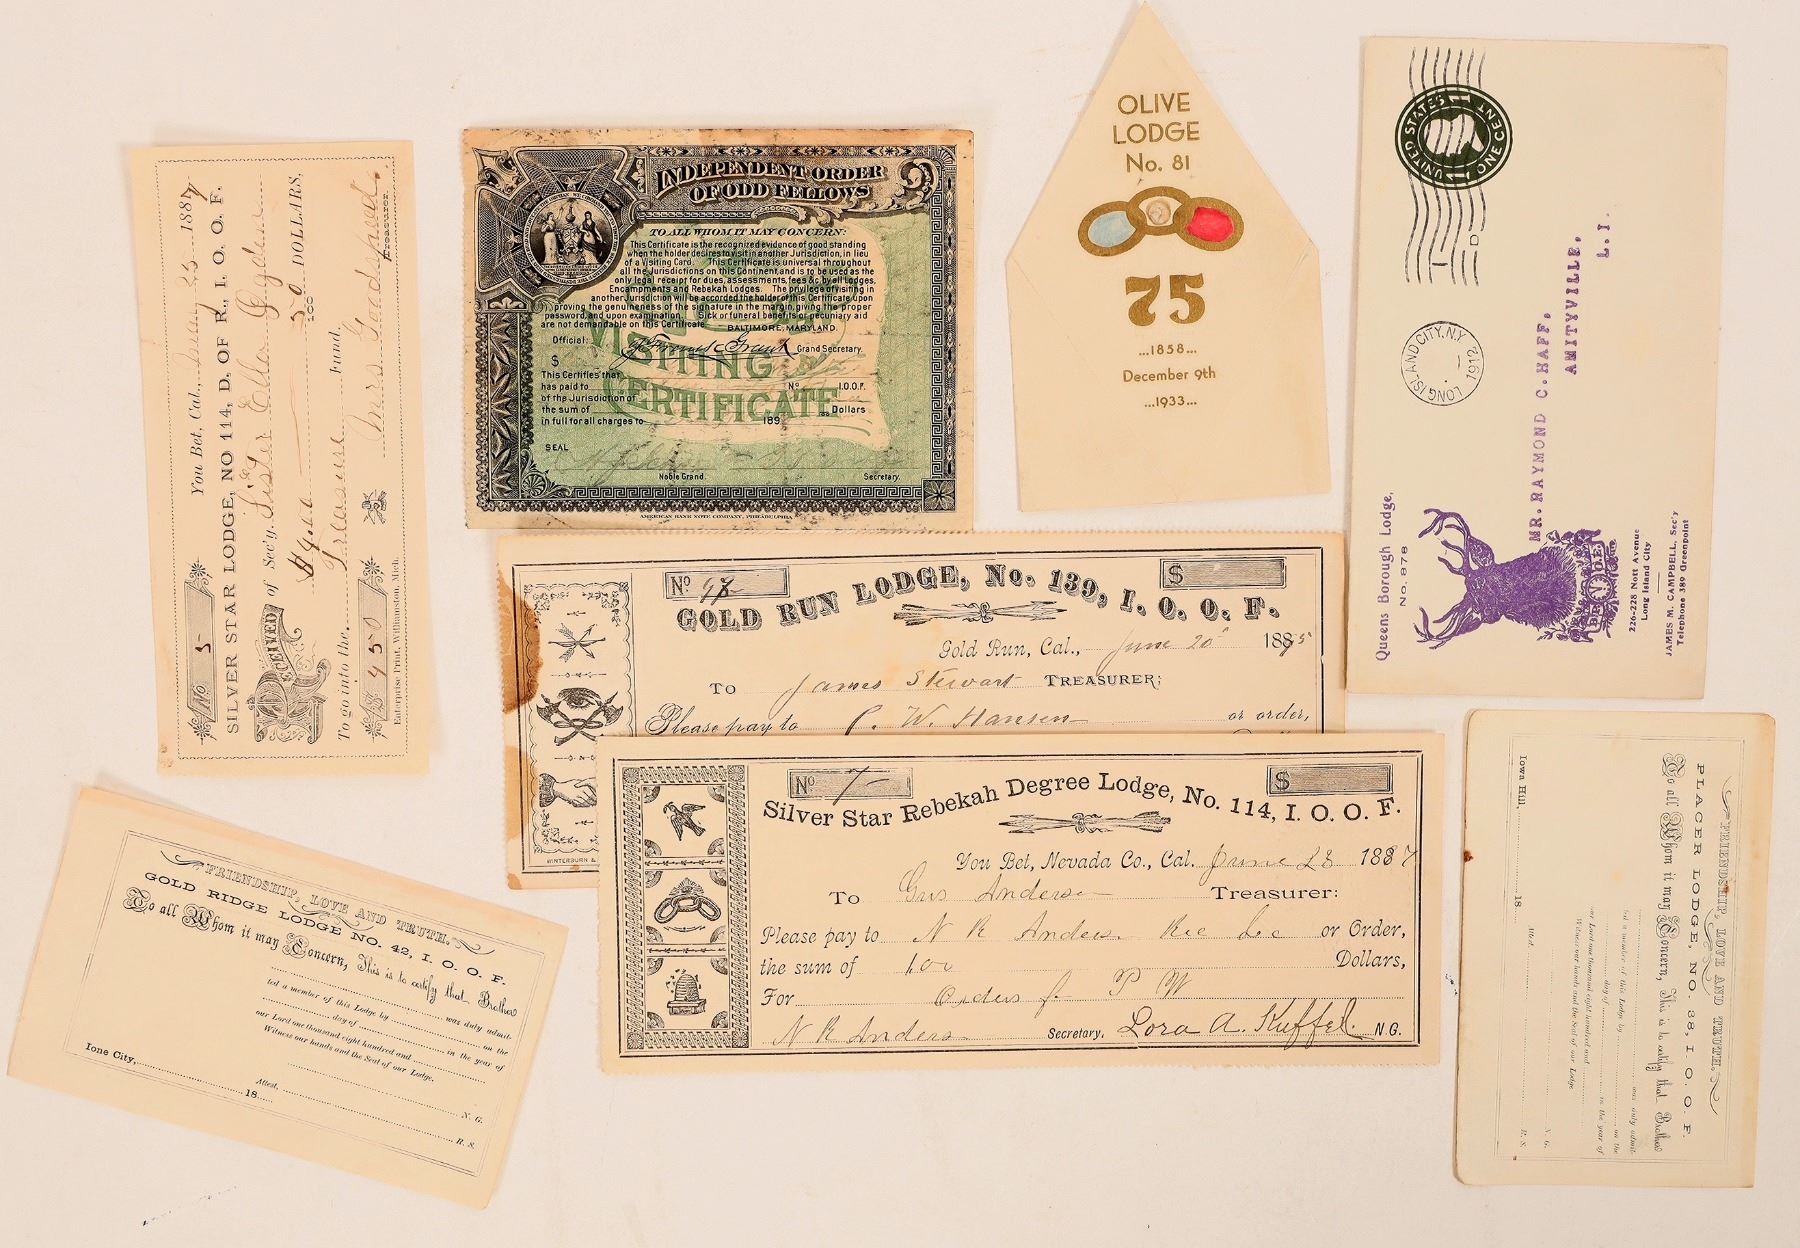 No 5
You Bet, Cal., 23 1887
SILVER STAR LODGE, NO 114, D. OF R., I. O. O. F.
RECEIVED of Sec'y. Sister Ella
$4.50 50/100 DOLLARS,
To go into the Treasure Fund.
$ 450 Mrs Goodspeed.
Treasurer.
Enterprise Print, Williamston, Mich.
INDEPENDENT ORDER
OF ODD FELLOWS
TO ALL WHOM IT MAY CONCERN:
This Certificate is the recognized evidence of good standing
when the holder desires to visit in another Jurisdiction, in lieu
of a Visiting Card. This Certificate is universal throughout
all the Jurisdictions on this Continent and is to be used as the
only legal receipt for dues, assessments, fees &c, by all Lodges,
Encampments and Rebekah Lodges. The privilege of visiting in
another jurisdiction will be accorded the holder of this Certificate upon
proving the genuineness of the signature in the margin, giving the proper
password, and upon examination. Sick or funeral benefits or pecuniary aid
are not demandable on this Certificate.
BALTIMORE, MARYLAND.
Official: Grant Grand Secretary.
VISITING
CERTIFICATE
$
This Certifies that
has paid to No I.O.O.F.
of the Jurisdiction of
the sum of 100 Dollars
in full for all charges to 189
SEAL
Noble Grand. Secretary.
AMERICAN BANK NOTE COMPANY, PHILADELPHIA
OLIVE
LODGE
No. 81
75
...1858...
December 9th
...1933...
UNITED STATES
ONE CENT
LONG ISLAND CITY, N.Y.
1912
MR. RAYMOND C. HAFF,
AMITYVILLE,
L.I.
Queens Borough Lodge,
No. 878
B.P.O.E.
226-228 Nott Avenue
Long Island City
JAMES M. CAMPBELL, Sec'y
Telephone 389 Greenpoint
No 98 $
GOLD RUN LODGE, No. 139, I. O. O. F.
Gold Run, Cal., June 20 1885
TO James Stewart TREASURER:
Please pay to C. W. Hansen or order,
WINTERBURN &
No 7 $
Silver Star Rebekah Degree Lodge, No. 114, I. O. O. F.
You Bet, Nevada Co., Cal. June 28 1887
To Gus Anderson Treasurer:
Please pay to N R Anders Rec Sec or Order,
the sum of 1.00 Dollars,
For Orders for P W
N R Anders Secretary. Lora A. Kuffel. N.G.
FRIENDSHIP, LOVE AND TRUTH.
GOLD RIDGE LODGE NO. 42, I. O. O. F.
To all Whom it may Concern, This is to certify that Brother
was duly admit-
ted a member of this Lodge by on the
day of in the year of
our Lord one thousand eight hundred and
Witness our hands and the Seal of our Lodge.
Ione City, 18
Attest. N. G.
R. S.
FRIENDSHIP, LOVE AND TRUTH.
PLACER LODGE, NO. 38, I. O. O. F.
To all Whom it may Concern, This is to certify that Brother
was duly admit-
ted a member of this Lodge by on the
day of in the year of
our Lord one thousand eight hundred and
Witness our hands and the Seal of our Lodge.
Iowa Hill, 18
Attest. N. G.
R. S.